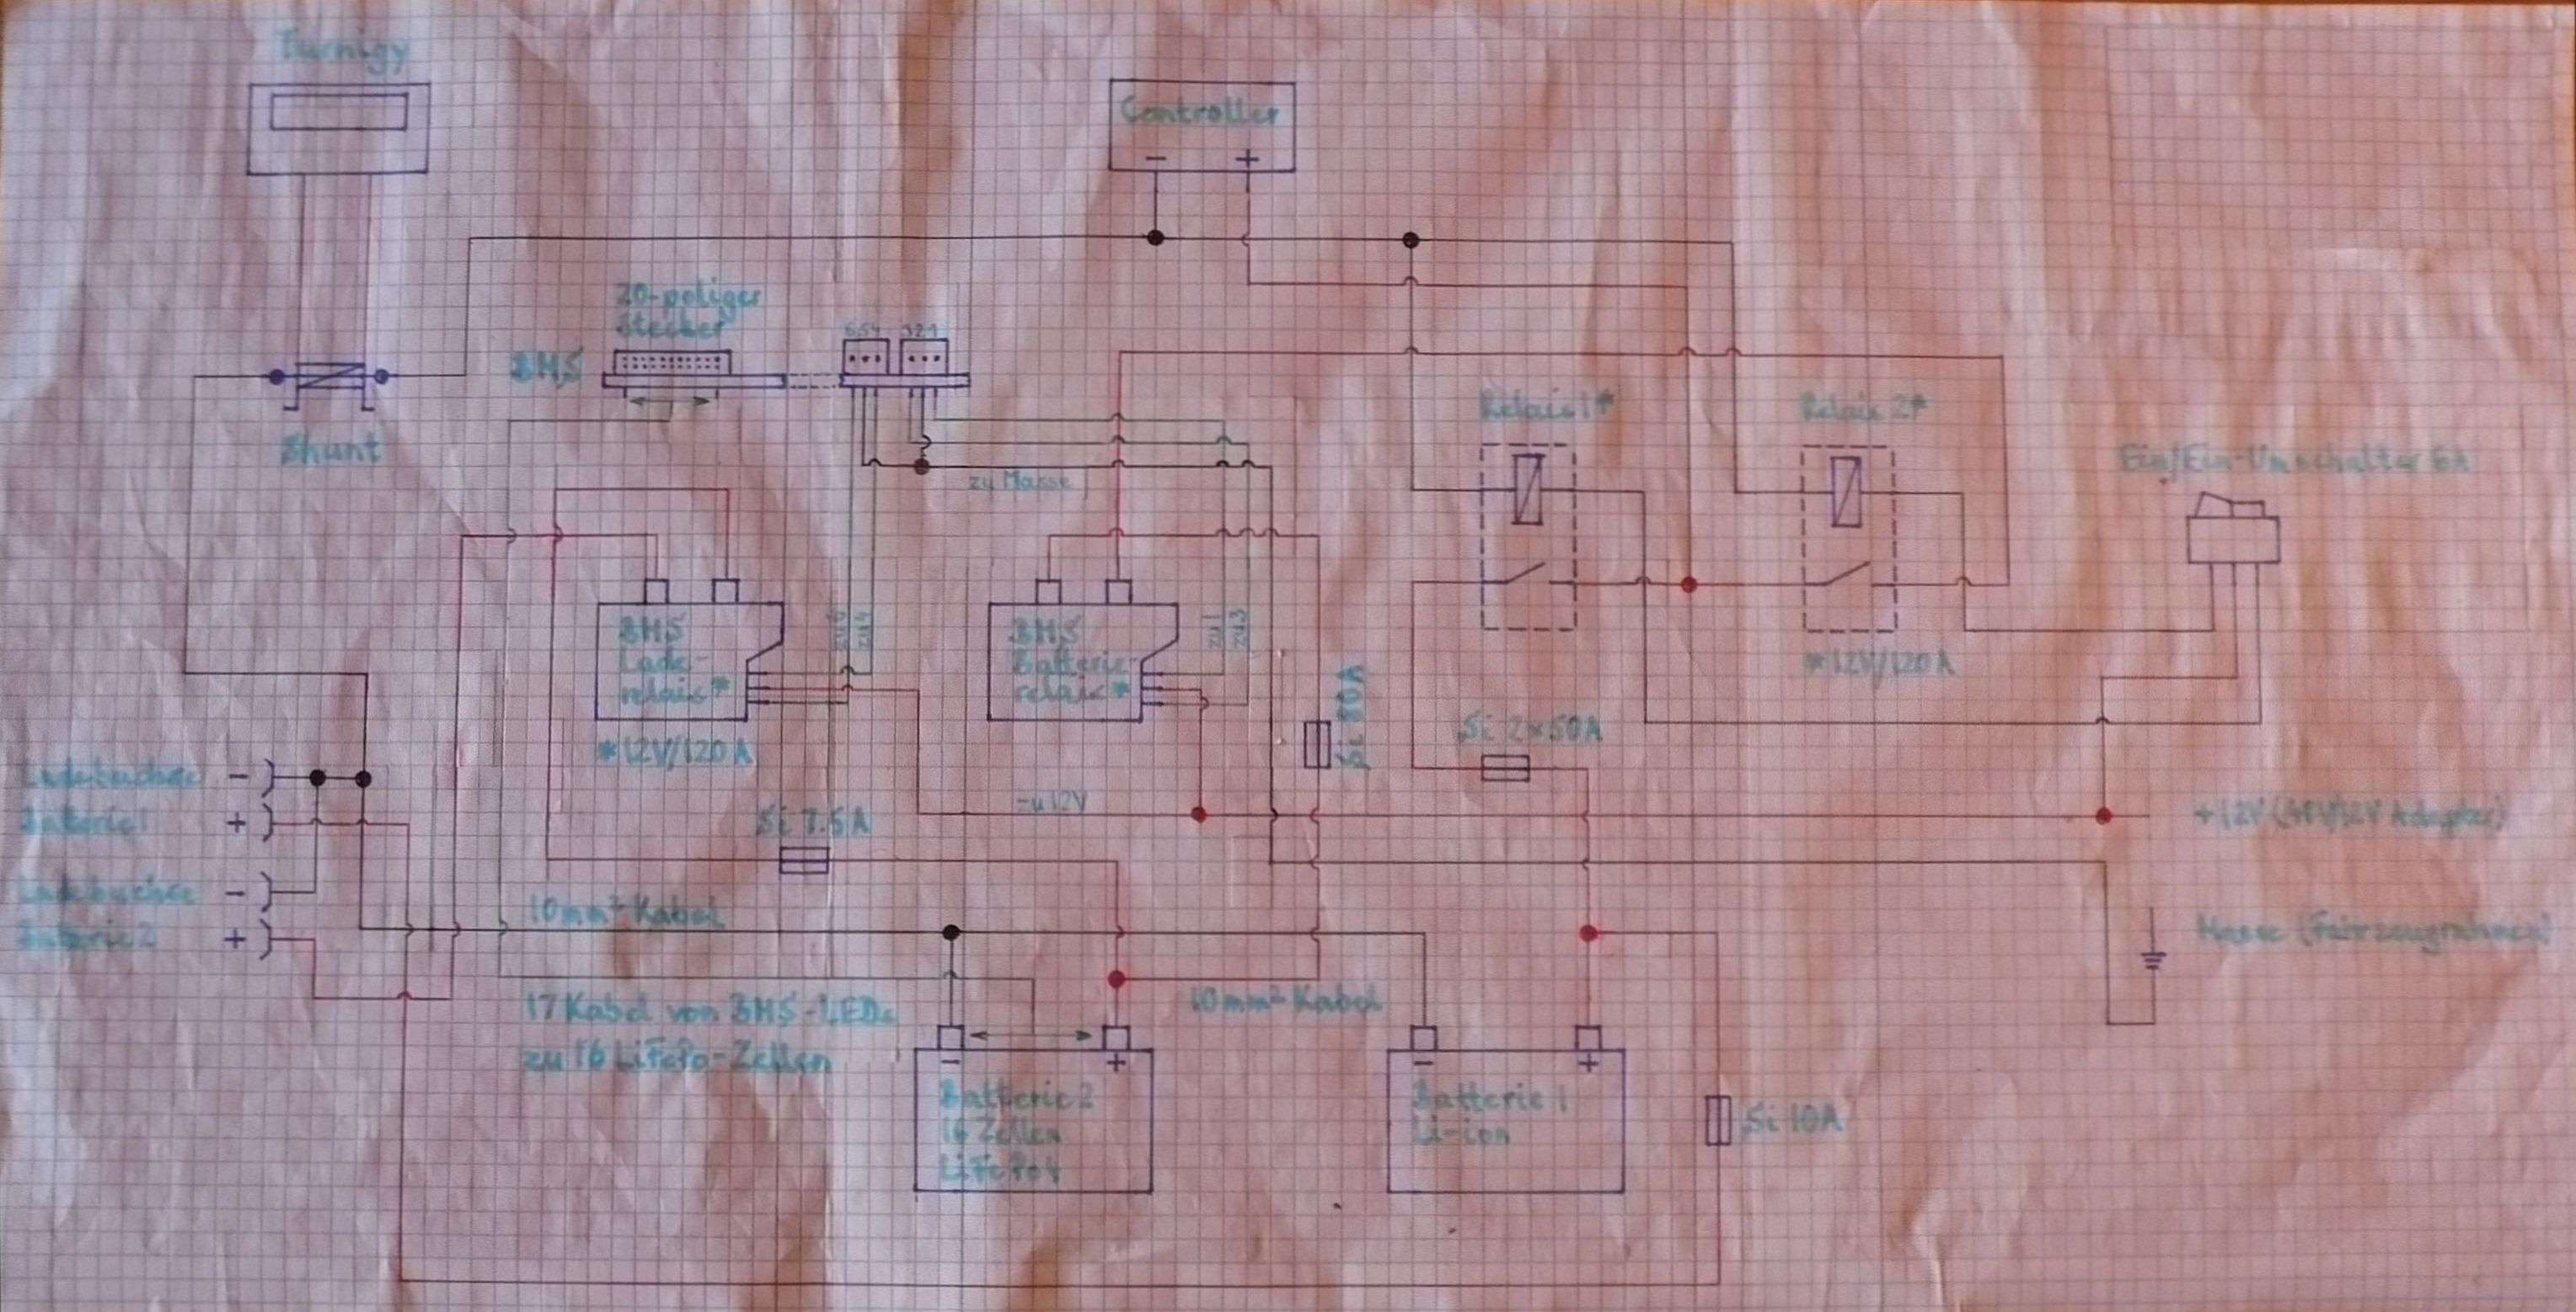 Turnigy
Controller
- +
20-poliger
Stecker
BMS
654 321
Shunt
zu Masse
Relais 1*
Relais 2*
Ein/Ein-Umschalter 6A
BMS
Lade-
relais*
*12V/120A
zu 6
zu 4
BMS
Batterie-
relais*
zu 1
zu 3
Si 80A
Si 2x50A
*12V/120A
Ladebuchse -
Batterie 1 +
Ladebuchse -
Batterie 2 +
Si 7.5A
zu 12V
+12V (48V/12V Adapter)
Masse (Fahrzeugrahmen)
10mm² Kabel
17 Kabel von BMS-LEDs
zu 16 LiFePo-Zellen
10mm² Kabel
- +
Batterie 2
16 Zellen
LiFePo4
- +
Batterie 1
Li-ion
Si 10A